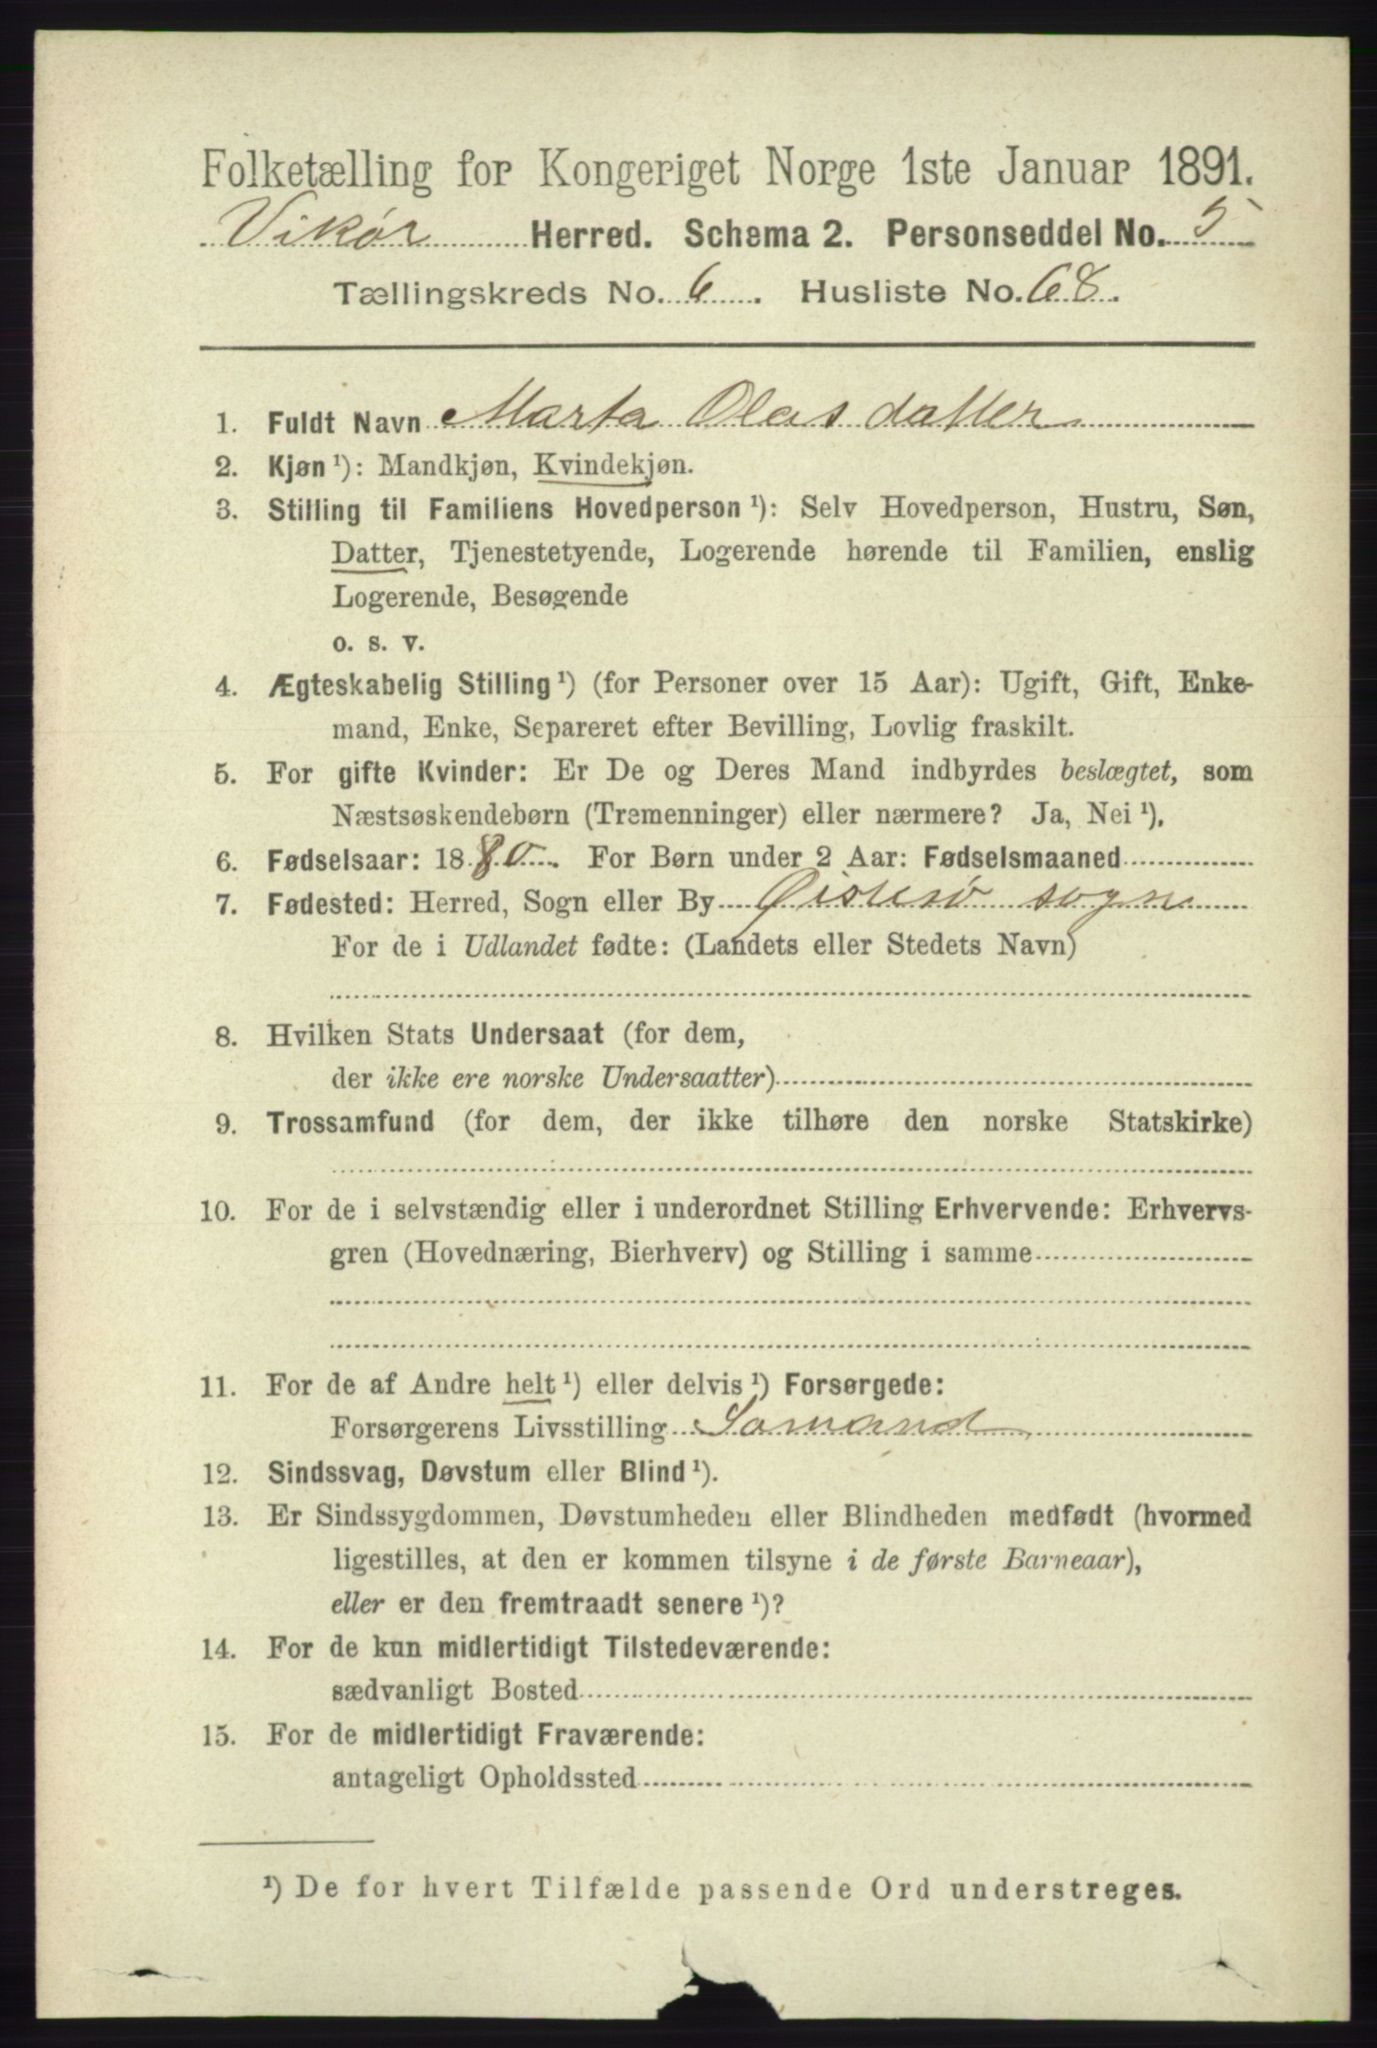 Folketælling for Kongeriget Norge 1ste Januar 1891.
Vikør Herred. Schema 2. Personseddel No. 5
Tællingskreds No. 6. Husliste No. 68.
1. Fuldt Navn Marta Olasdatter
2. Kjøn ¹): Mandkjøn, Kvindekjøn.
3. Stilling til Familiens Hovedperson ¹): Selv Hovedperson, Hustru, Søn,
Datter, Tjenestetyende, Logerende hørende til Familien, enslig
Logerende, Besøgende
o. s. v.
4. Ægteskabelig Stilling ¹) (for Personer over 15 Aar): Ugift, Gift, Enke-
mand, Enke, Separeret efter Bevilling, Lovlig fraskilt.
5. For gifte Kvinder: Er De og Deres Mand indbyrdes beslægtet, som
Næstsøskendebørn (Tremenninger) eller nærmere? Ja, Nei ¹).
6. Fødselsaar: 1880. For Børn under 2 Aar: Fødselsmaaned
7. Fødested: Herred, Sogn eller By Øistesø sogn
For de i Udlandet fødte: (Landets eller Stedets Navn)
8. Hvilken Stats Undersaat (for dem,
der ikke ere norske Undersaatter)
9. Trossamfund (for dem, der ikke tilhøre den norske Statskirke)
10. For de i selvstændig eller i underordnet Stilling Erhvervende: Erhvervs-
gren (Hovednæring, Bierhverv) og Stilling i samme
11. For de af Andre helt ¹) eller delvis ¹) Forsørgede:
Forsørgerens Livsstilling Sømand
12. Sindssvag, Døvstum eller Blind ¹).
13. Er Sindssygdommen, Døvstumheden eller Blindheden medfødt (hvormed
ligestilles, at den er kommen tilsyne i de første Barneaar),
eller er den fremtraadt senere ¹)?
14. For de kun midlertidigt Tilstedeværende:
sædvanligt Bosted
15. For de midlertidigt Fraværende:
antageligt Opholdssted
¹) De for hvert Tilfælde passende Ord understreges.